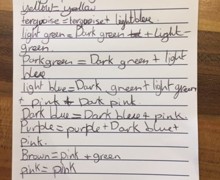 yellow=yellow
terquoise=terquoise+lightblue.
light green=Dark green + light-
green.
Darkgreen=Dark green+light
blue
light blue=Dark green+light green
+ Pink + Dark pink
Dark blue=Dark blue+pink.
Purple=purple+Dark blue+
Pink.
Brown=pink+green
pink=pink